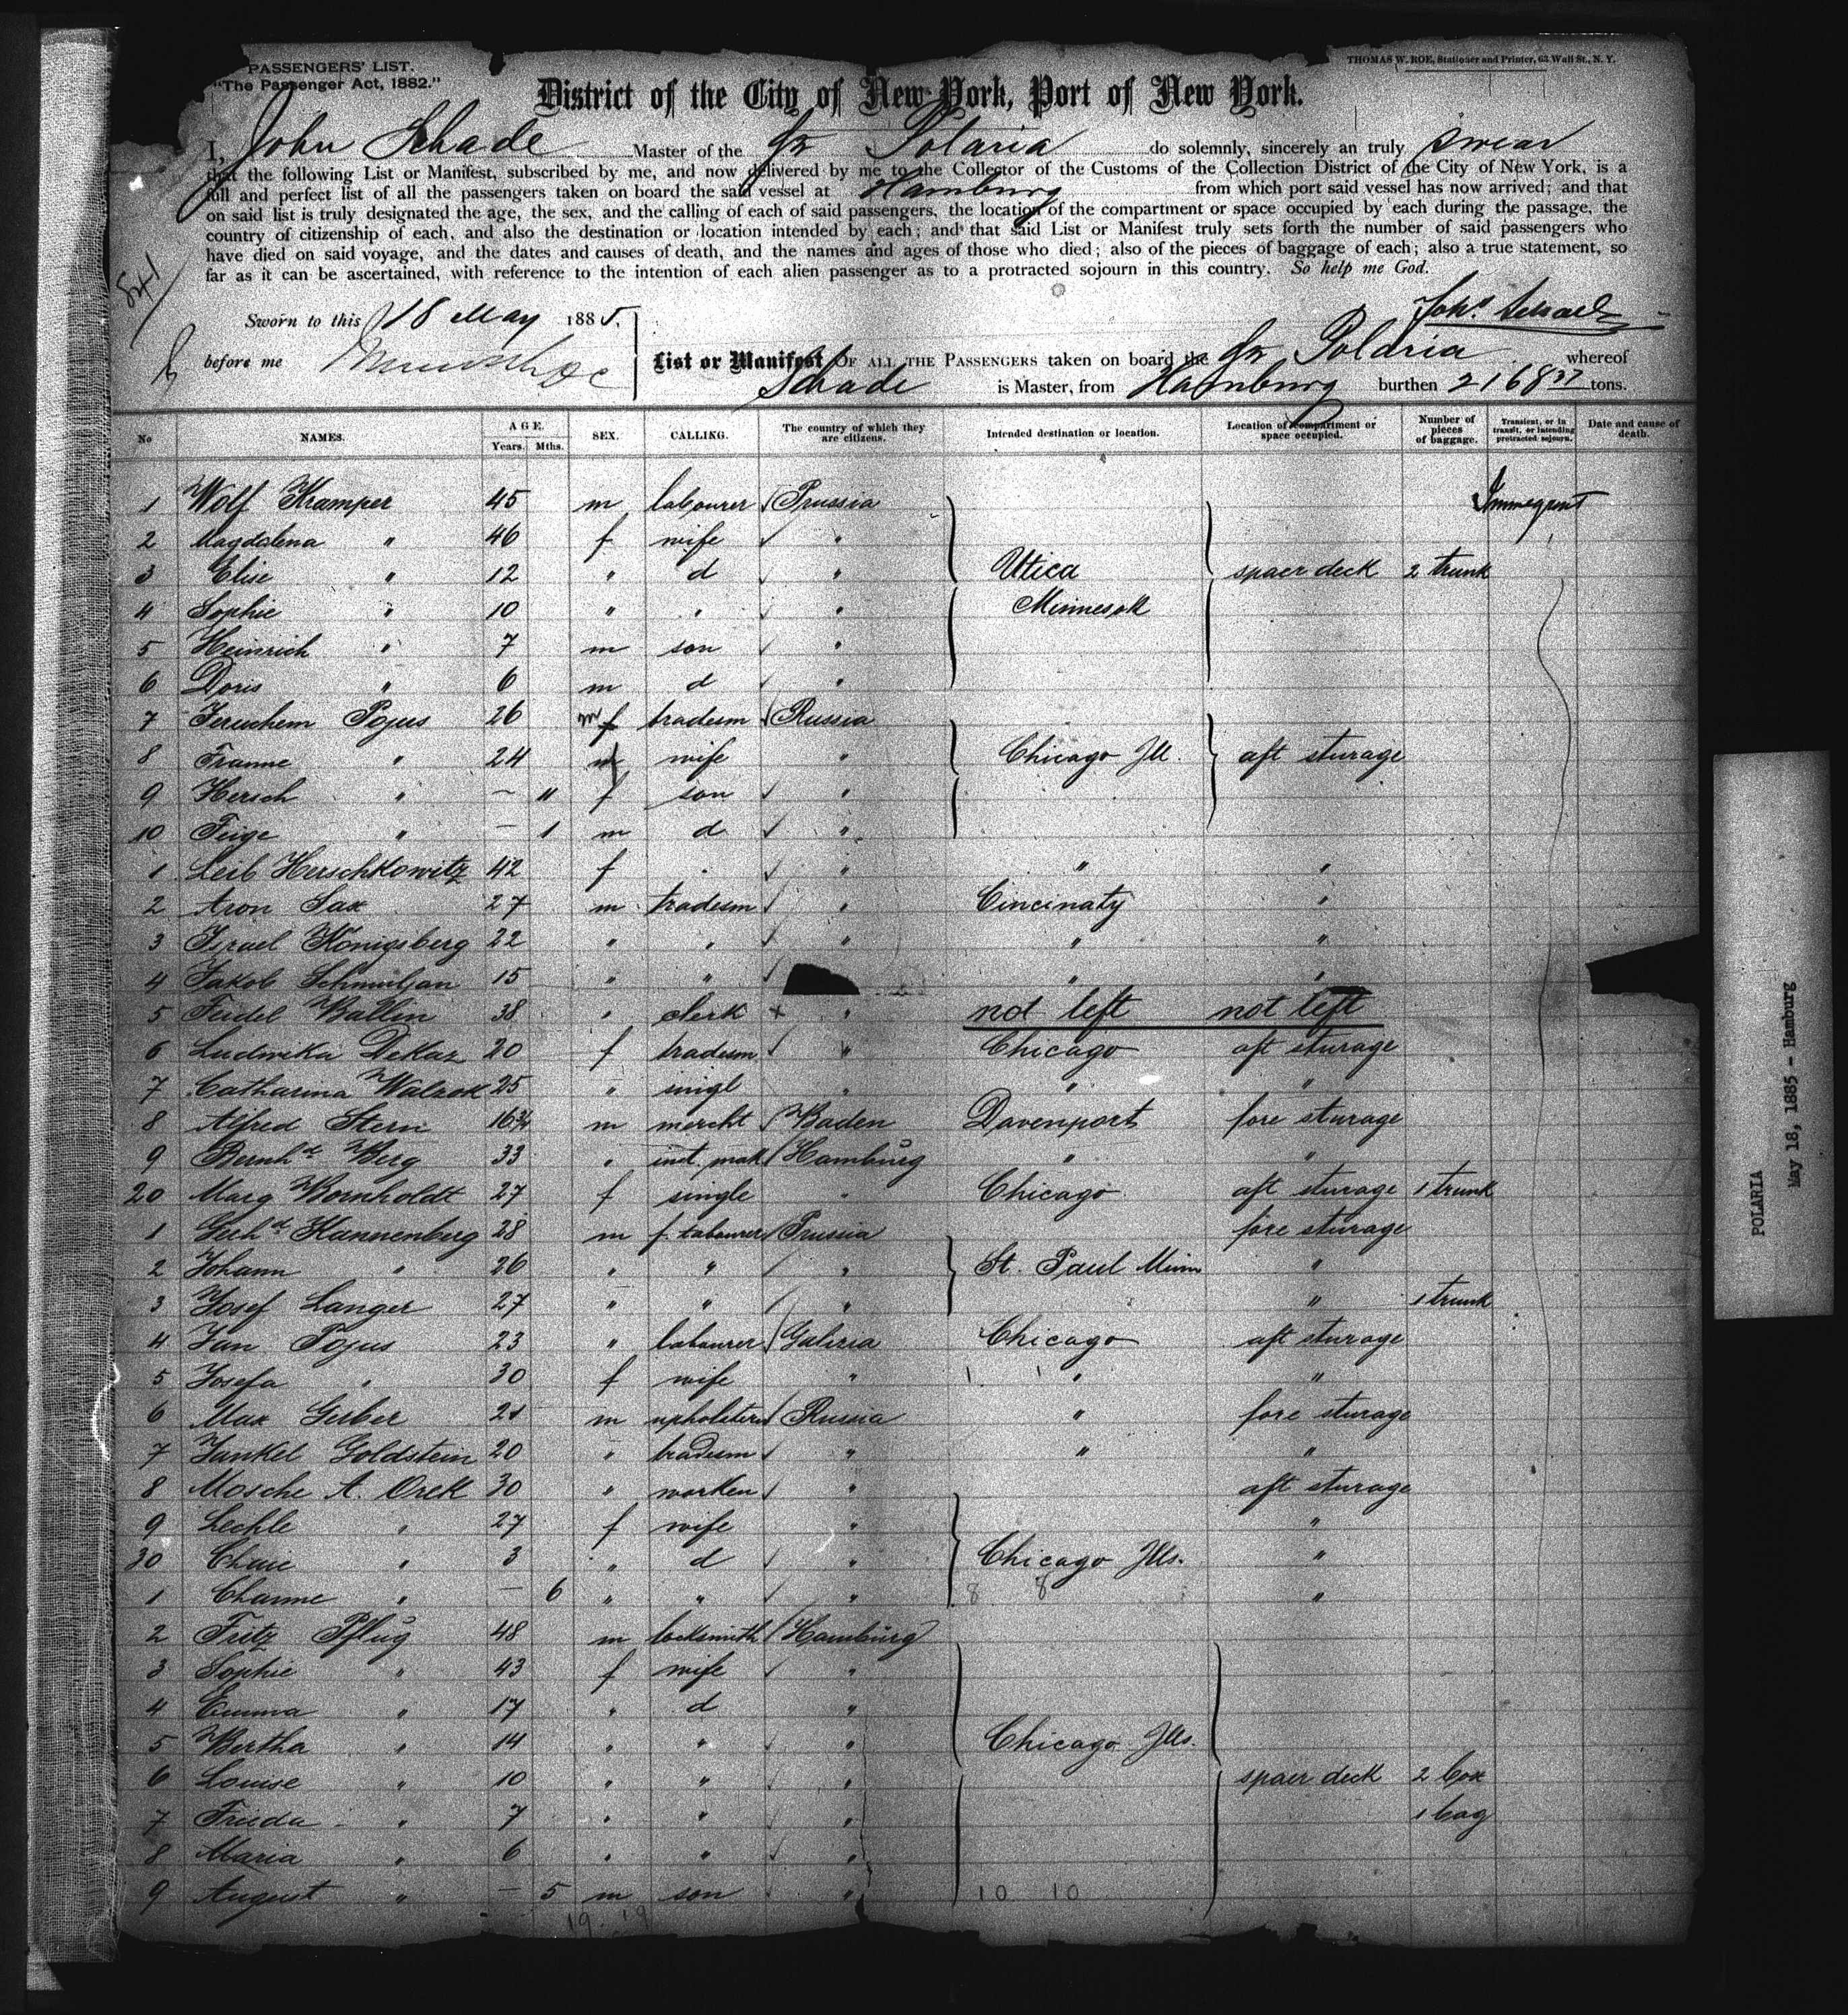 PASSENGERS' LIST.
"The Passenger Act, 1882."
THOMAS W. ROE, Stationer and Printer, 63 Wall St., N. Y.
District of the City of New York, Port of New York.
I, John Schade Master of the Polaria do solemnly, sincerely an truly swear
that the following List or Manifest, subscribed by me, and now delivered by me to the Collector of the Customs of the Collection District of the City of New York, is a
full and perfect list of all the passengers taken on board the said vessel at Hamburg from which port said vessel has now arrived; and that
on said list is truly designated the age, the sex, and the calling of each of said passengers, the location of the compartment or space occupied by each during the passage, the
country of citizenship of each, and also the destination or location intended by each; and that said List or Manifest truly sets forth the number of said passengers who
have died on said voyage, and the dates and causes of death, and the names and ages of those who died; also of the pieces of baggage of each; also a true statement, so
far as it can be ascertained, with reference to the intention of each alien passenger as to a protracted sojourn in this country. So help me God.
841
Sworn to this 18 May 1885,
before me
List or Manifest OF ALL THE PASSENGERS taken on board the Polaria whereof
Schade is Master, from Hamburg burthen 2168 37 tons.
No NAMES. AGE. Years. Mths. SEX. CALLING. The country of which they are citizens. Intended destination or location. Location of compartment or space occupied. Number of pieces of baggage. Transient, or in transit, or intending protracted sojourn. Date and cause of death.
1 Wolf Kramper 45 m labourer Prussia Immegrant
2 Magdalena " 46 f wife "
3 Elise " 12 " d " Utica spaer deck 2 trunk
4 Sophie " 10 " " " Minnesok
5 Heinrich " 7 m son "
6 Doris " 6 m d "
7 Jeruchem Pojus 26 m f tradesm Russia
8 Franne " 24 wife " Chicago Ill. aft sturage
9 Hersch " – 11 f son "
10 Feige " – 1 m d "
1 Leib Herschkowitz 42 f " " " "
2 Aron Sax 27 m tradesm " Cincinaty "
3 Israel Königsberg 22 " " " " "
4 Jakob Schmuljan 15 " " " "
5 Feidel Ballin 38 " clerk x " not left not left
6 Ludwika Dekaz 20 f tradesm " Chicago aft sturage
7 Catharina Walzak 25 " singl " " "
8 Alfred Stern 16¾ m mercht Baden Davenport fore sturage
9 Bernhd Berg 33 " inst. mak Hamburg " "
20 Marg Bornholdt 27 f single " Chicago aft sturage 1 trunk
1 Gerhd Kannenberg 28 m f. labourer Prussia fore sturage
2 Johann " 26 " " " St. Paul Minn "
3 Josef Langer 27 " " " " 1 trunk
4 Jan Pojus 23 " labourer Galizia Chicago aft sturage
5 Josefa " 30 f wife " " "
6 Max Gerber 21 m upholsterer Russia " fore sturage
7 Jankel Goldstein 20 " tradesm " " "
8 Mosche A. Orek 30 " worken " aft sturage
9 Lechle " 27 f wife " "
30 Chene " 3 " d " Chicago Ills. "
1 Channe " – 6 " " " 8 8 "
2 Fritz Pflug 48 m locksmith Hamburg
3 Sophie " 43 f wife "
4 Emma " 17 " d "
5 Bertha " 14 " " " Chicago Ills.
6 Louise " 10 " " " spaer deck 2 box
7 Frieda " 7 " " " 1 bag
8 Maria " 6 " " "
9 August " – 5 m son " 10 10
19 19
POLARIA
May 18, 1885 - Hamburg